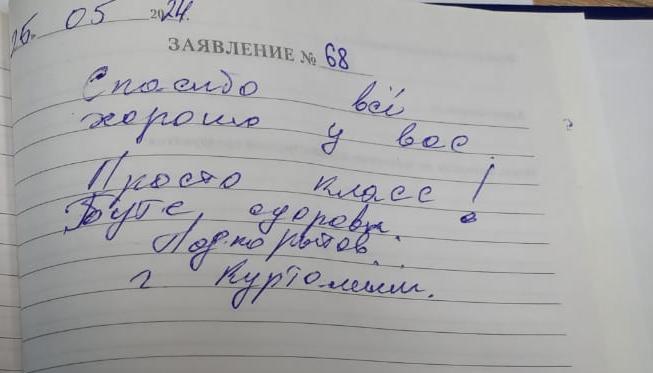 26. 05 2024.
ЗАЯВЛЕНИЕ № 68
Спасибо всё
хорошо у вас.
Просто класс!
Буте здоровы.
Подкорытов.
г Куртамыш.